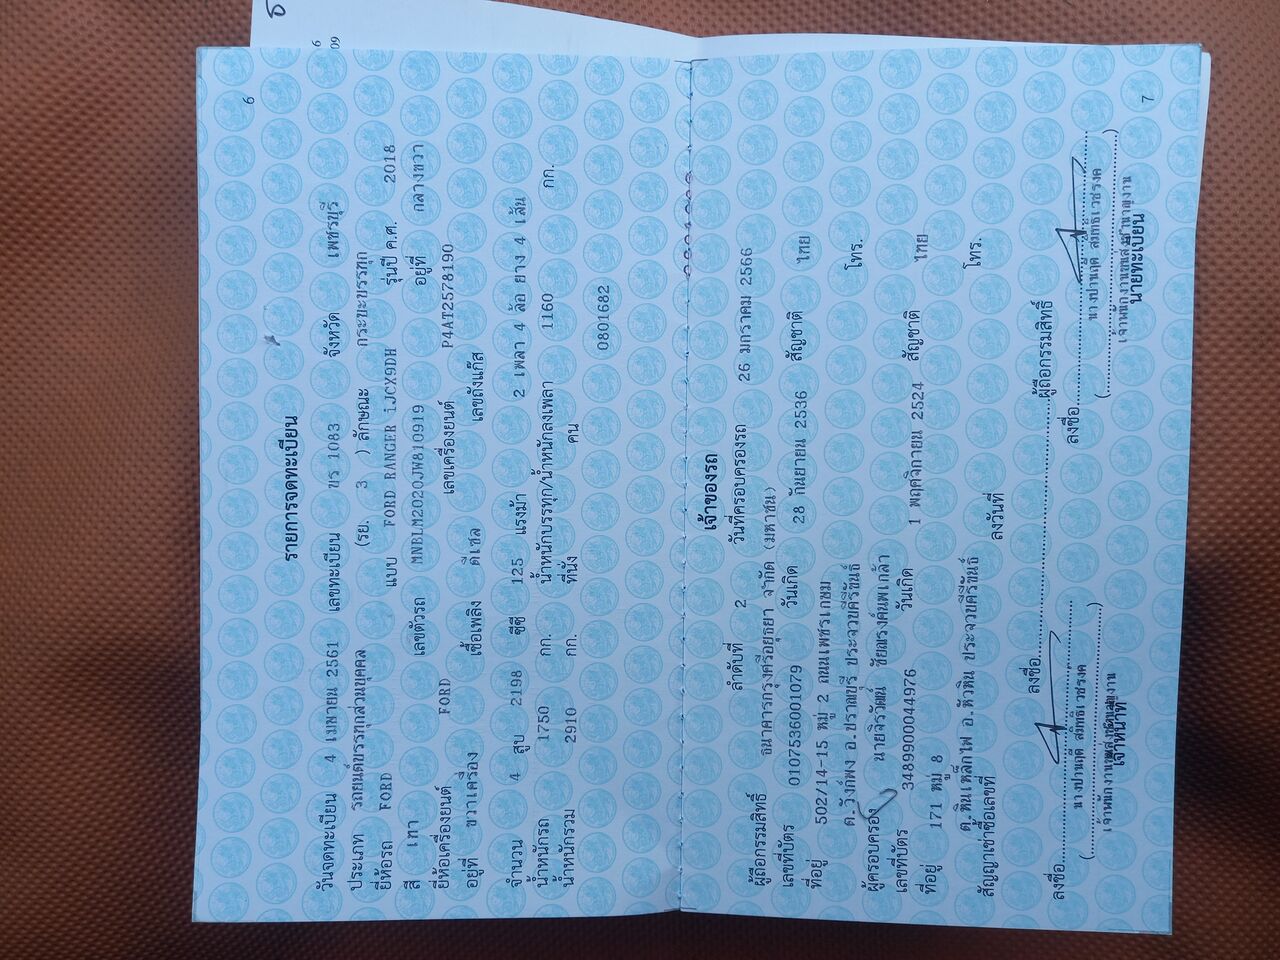 6
รายการจดทะเบียน
วันจดทะเบียน 4 เมษายน 2561 เลขทะเบียน ขร 1083 จังหวัด เพชรบุรี
ประเภท รถยนต์บรรทุกส่วนบุคคล (รย. 3 ) ลักษณะ กระบะบรรทุก
ยี่ห้อรถ FORD แบบ FORD RANGER iJCX9DH รุ่นปี ค.ศ. 2018
สี เทา เลขตัวรถ MNBLM2020JW810919 อยู่ที่ กลางขวา
ยี่ห้อเครื่องยนต์ FORD เลขเครื่องยนต์ P4AT2578190
อยู่ที่ ขวาเครื่อง เชื้อเพลิง ดีเซล เลขถังแก๊ส
จำนวน 4 สูบ 2198 ซีซี 125 แรงม้า 2 เพลา 4 ล้อ ยาง 4 เส้น
น้ำหนักรถ 1750 กก. น้ำหนักบรรทุก/น้ำหนักลงเพลา 1160 กก.
น้ำหนักรวม 2910 กก. ที่นั่ง คน
0801682
เจ้าของรถ
ลำดับที่ 2 วันที่ครอบครองรถ 26 มกราคม 2566
ผู้ถือกรรมสิทธิ์ ธนาคารกรุงศรีอยุธยา จำกัด (มหาชน)
เลขที่บัตร 0107536001079 วันเกิด 28 กันยายน 2536 สัญชาติ ไทย
ที่อยู่ 502/14-15 หมู่ 2 ถนนเพชรเกษม
ต.วังก์พง อ.ปราณบุรี ประจวบคีรีขันธ์ โทร.
ผู้ครอบครอง นายจิรวัฒน์ ชัยณรงค์นพเกล้า
เลขที่บัตร 3489900044976 วันเกิด 1 พฤศจิกายน 2524 สัญชาติ ไทย
ที่อยู่ 171 หมู่ 8
ต.หินเหล็กไฟ อ.หัวหิน ประจวบคีรีขันธ์ โทร.
สัญญาเช่าซื้อเลขที่ ลงวันที่
ลงชื่อ ผู้ถือกรรมสิทธิ์
ลงชื่อ ลงชื่อ
นางปานฤดี นางปานฤดี
เจ้าหน้าที่ นายทะเบียน
7